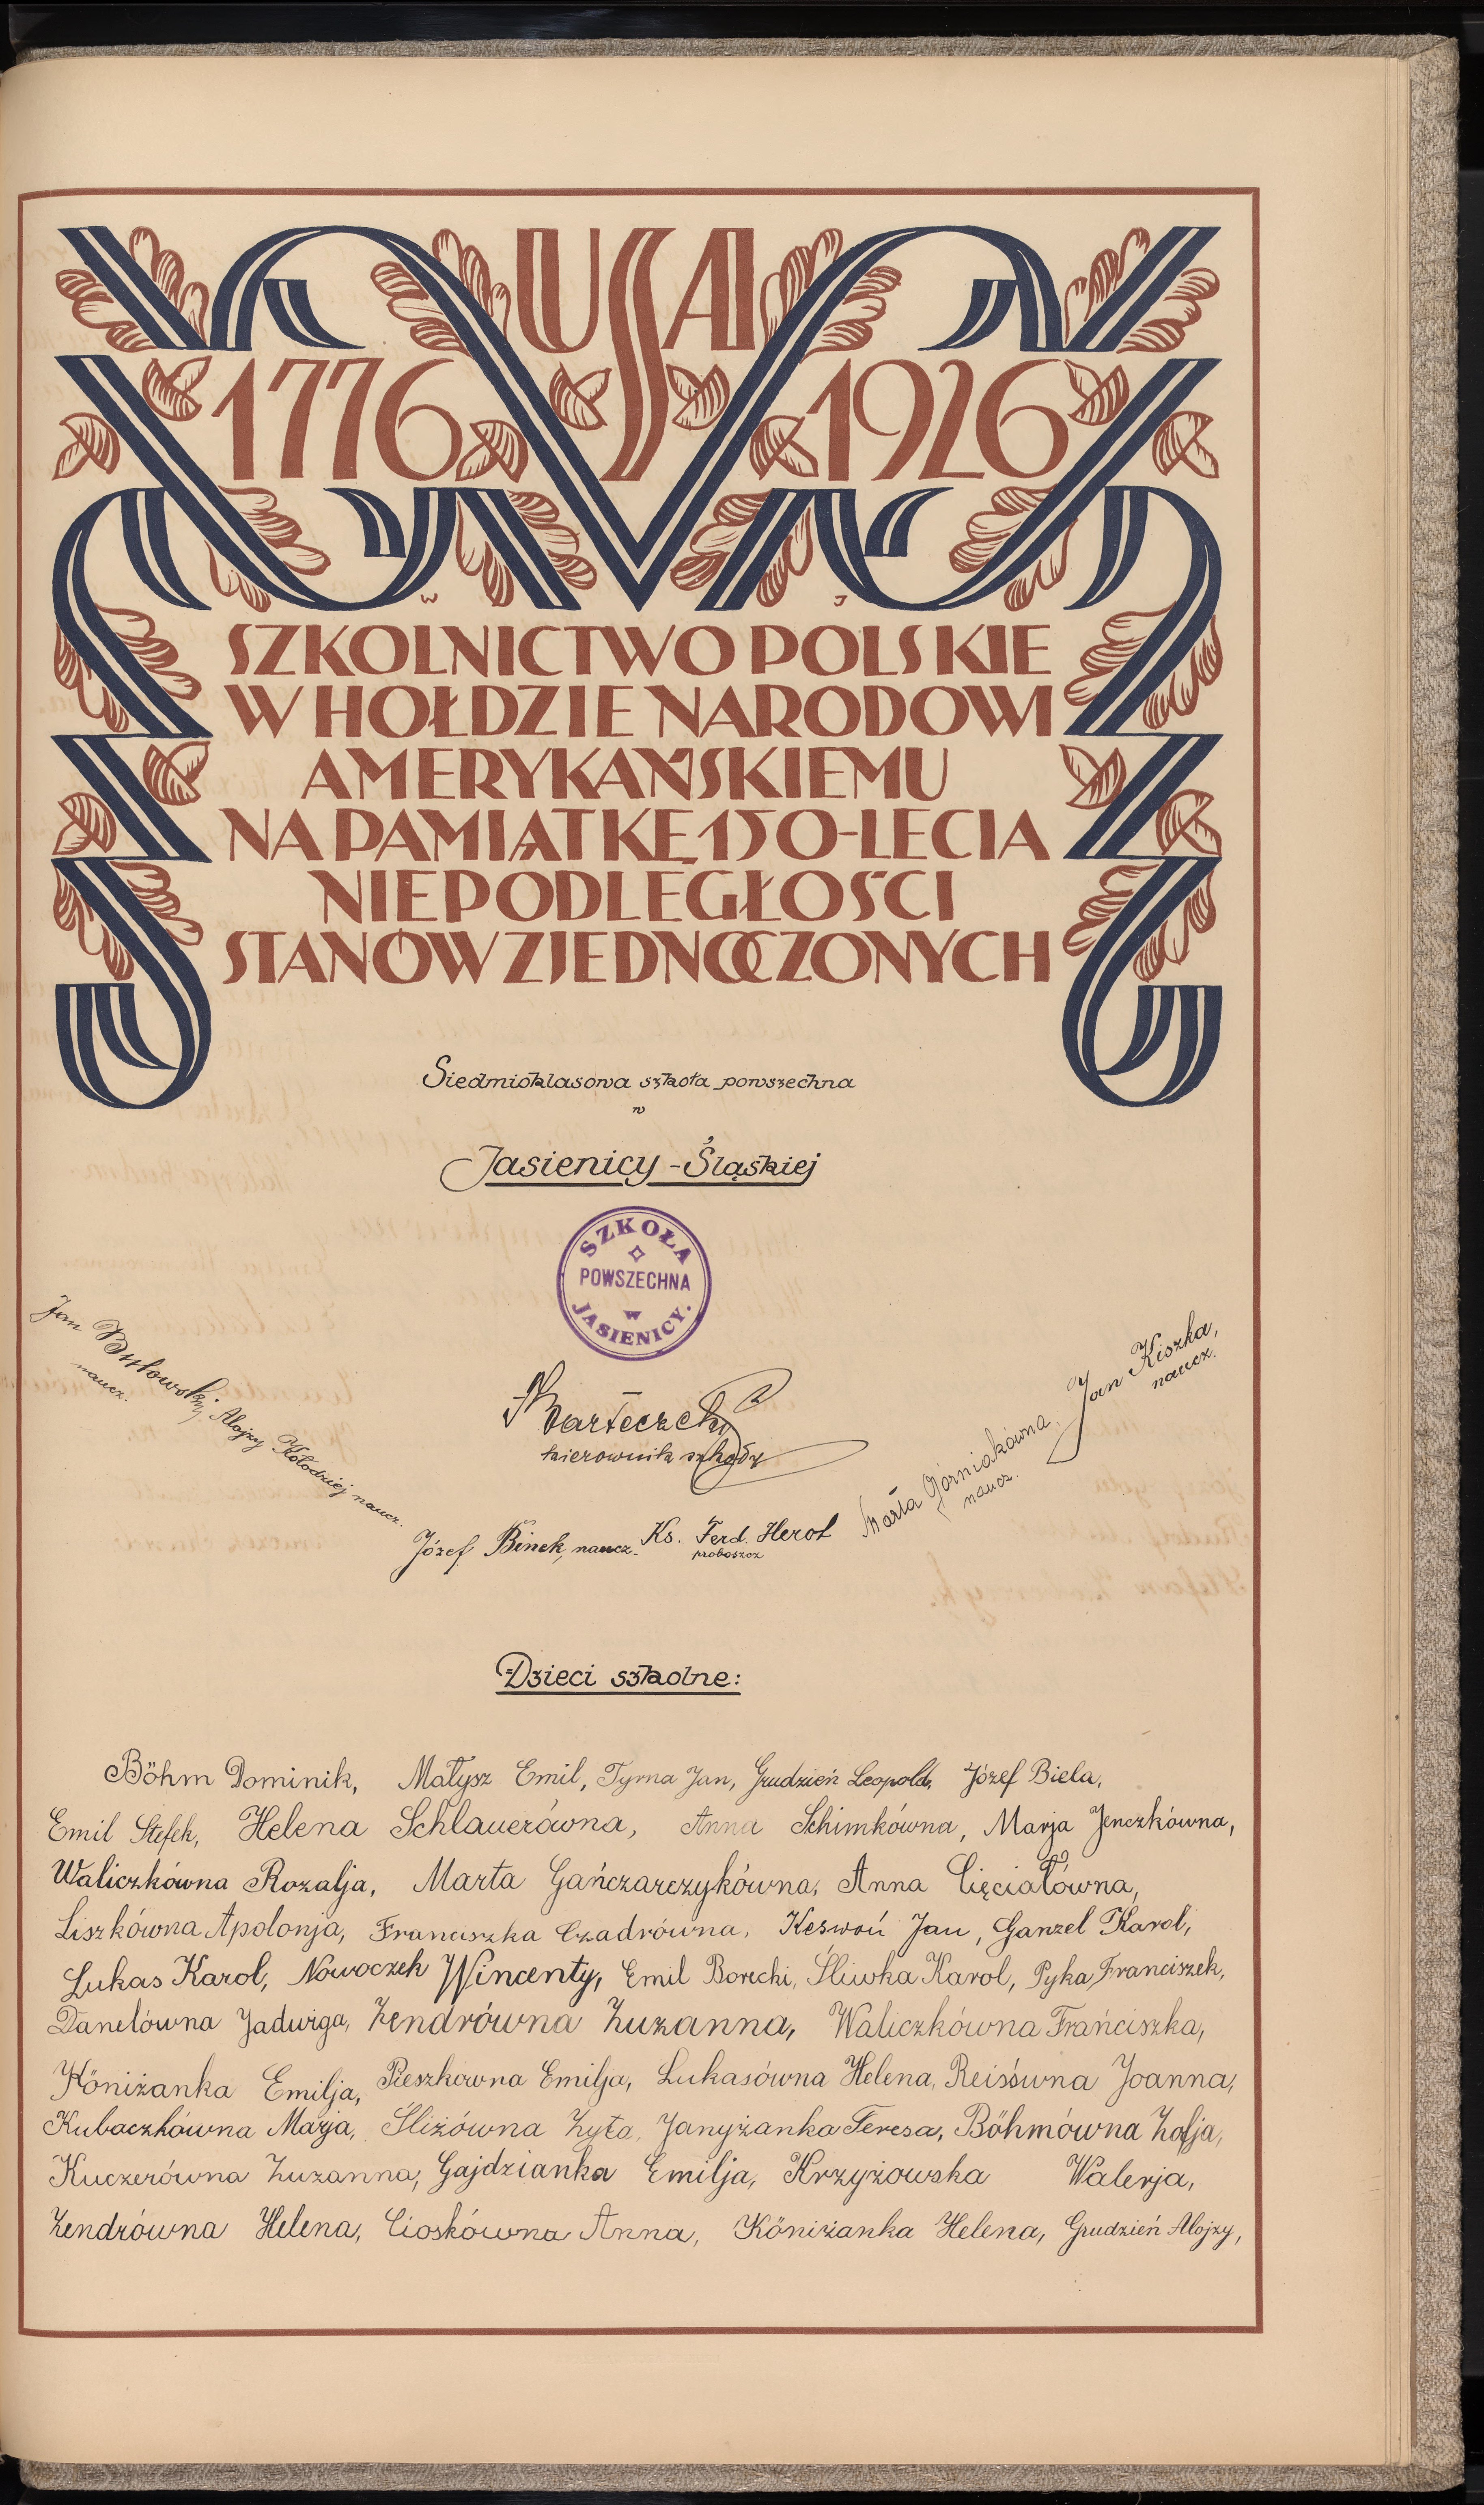 USA
1776 1926
W J
SZKOLNICTWO POLSKIE
W HOŁDZIE NARODOWI
AMERYKAŃSKIEMU
NA PAMIĄTKĘ 150-LECIA
NIEPODLEGŁOŚCI
STANÓW ZJEDNOCZONYCH
Siedmioklasowa szkoła powszechna
w
Jasienicy-Śląskiej
SZKOŁA
POWSZECHNA
W
JASIENICY.
Jan
naucz.
Alojzy Kołodziej naucz.
kierownik szkoły
Józef Binek, naucz.
Ks. Ferd. Herot
proboszcz
Marta Górniakówna,
naucz.
Jan Kiszka,
naucz.
Dzieci szkolne:
Böhm Dominik, Małysz Emil, Tyrna Jan, Grudzień Leopold, Józef Biela,
Emil Stefek, Helena Schlauerówna, Anna Schimkówna, Marja Jenczkówna,
Waliczkówna Rozalja, Marta Gańczarczykówna, Anna Cięciałówna,
Liszkówna Apolonja, Franciszka Czadrówna, Keswoń Jan, Ganzel Karol,
Lukas Karol, Nowoczek Wincenty, Emil Borecki, Śliwka Karol, Pyka Franciszek,
Danelówna Jadwiga, Zendrówna Zuzanna, Waliczkówna Frańciszka,
Köniżanka Emilja, Pieszkówna Emilja, Lukasówna Helena, Joanna,
Kubaczkówna Marja, Śliżówna Zyta, Janyżanka Teresa, Böhmówna Zofja,
Kuczerówna Zuzanna, Gajdzianka Emilja, Krzyżowska Walerja,
Zendrówna Helena, Cioskówna Anna, Köniżanka Helena, Grudzień Alojzy,